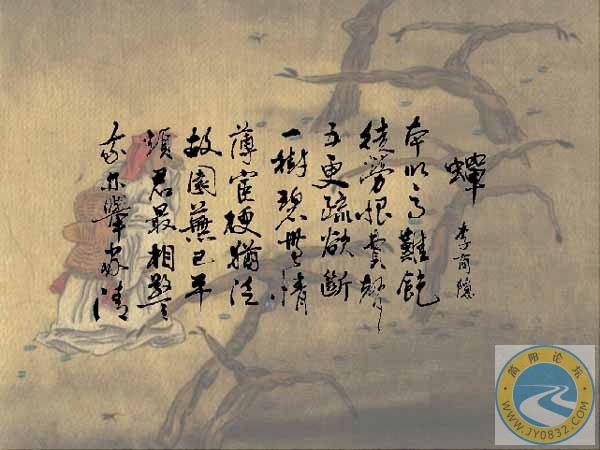 蟬
李商隱
本以高難飽
徒勞恨費聲
五更疏欲斷
一樹碧無情
薄宦梗猶泛
故園蕪已平
煩君最相警
我亦舉家清
简阳论坛
WWW.JY0832.COM